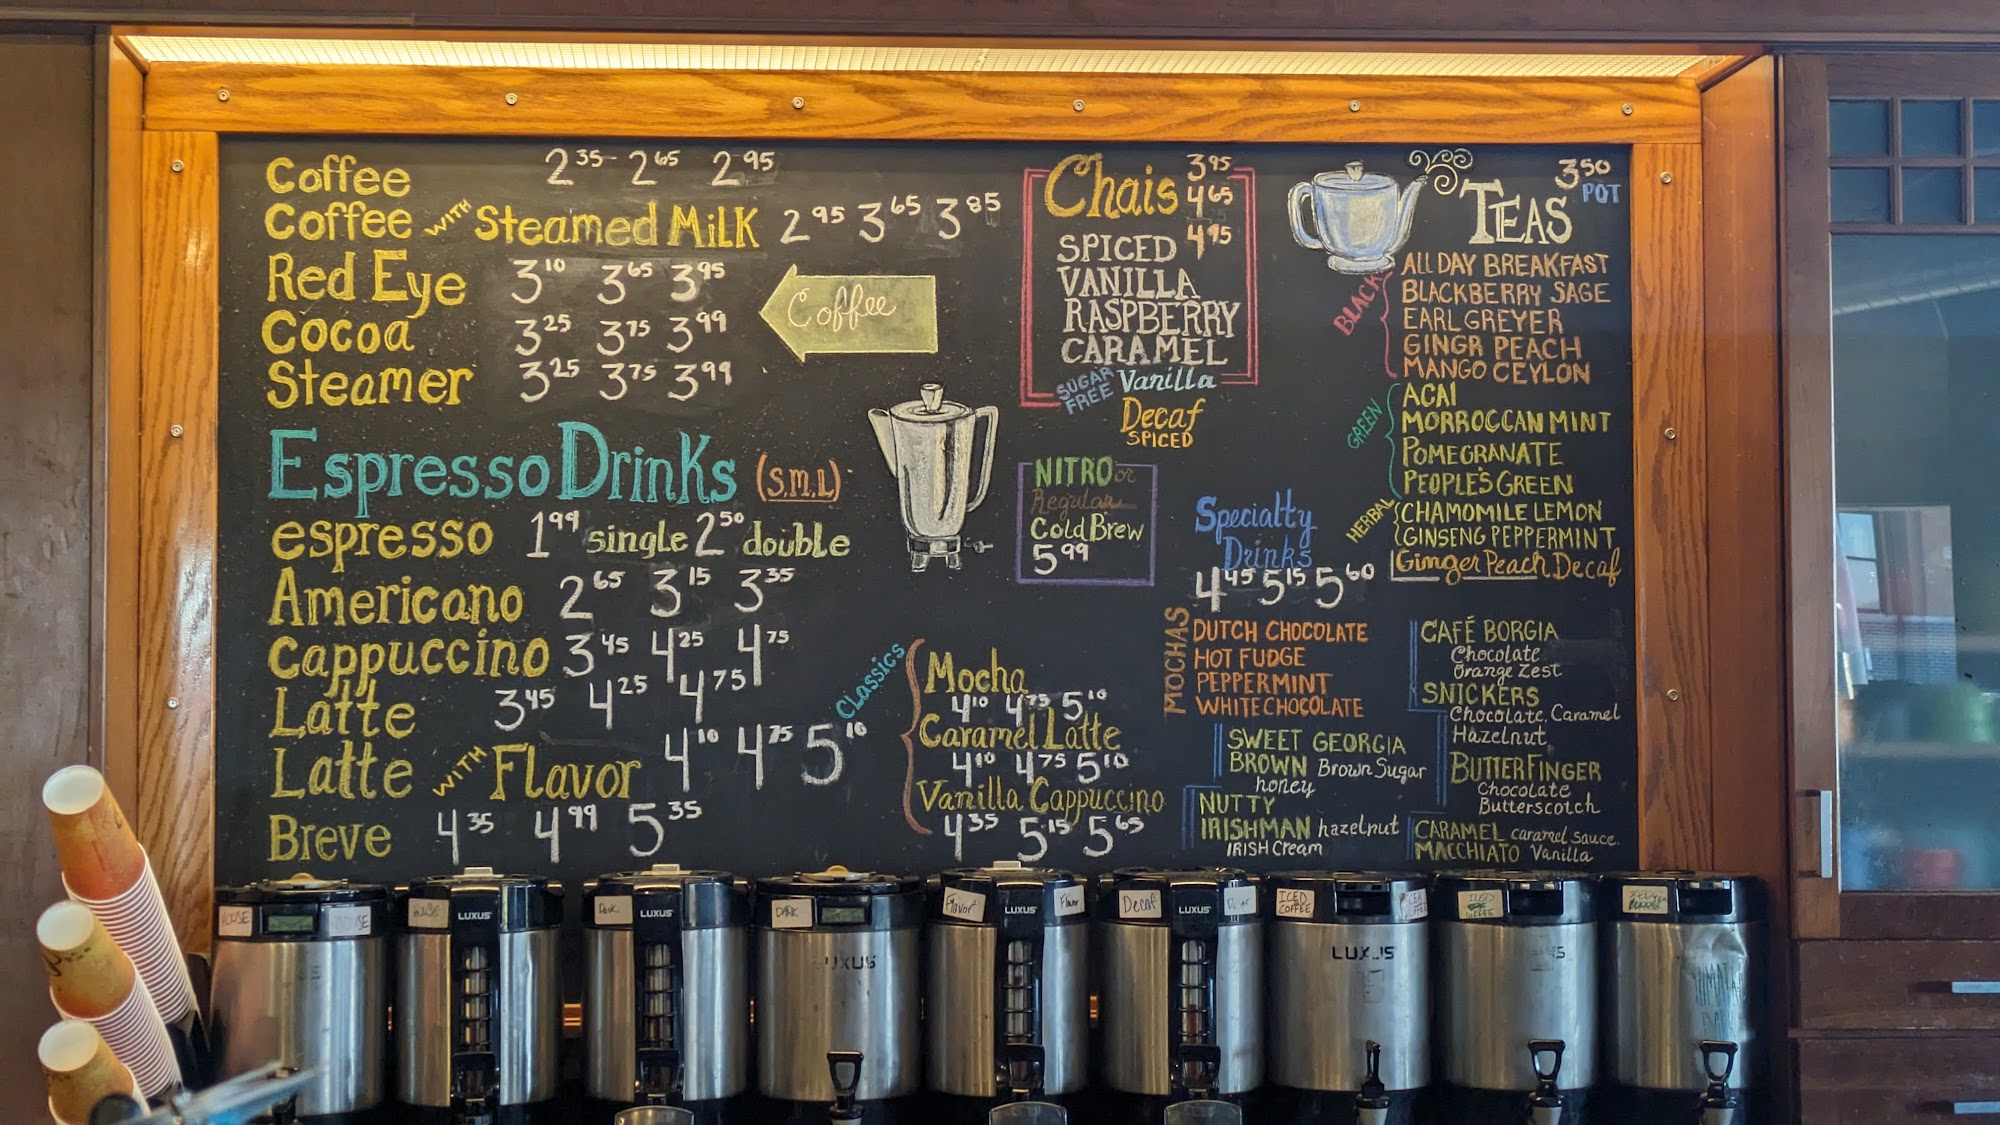 Coffee 2.35 2.65 2.95
Coffee WITH Steamed MiLK 2.95 3.65 3.85
Red Eye 3.10 3.65 3.95
Cocoa 3.25 3.75 3.99
Steamer 3.25 3.75 3.99
Coffee
Espresso Drinks (S.M.L)
espresso 1.99 single 2.50 double
Americano 2.65 3.15 3.35
Cappuccino 3.45 4.25 4.75
Latte 3.45 4.25 4.75
Latte WITH Flavor 4.10 4.75 5.10
Breve 4.35 4.99 5.35
Classics
Mocha
4.10 4.75 5.10
Caramel Latte
4.10 4.75 5.10
Vanilla Cappuccino
4.35 5.15 5.65
Chais 3.95
4.65
4.95
SPICED
VANILLA
RASPBERRY
CARAMEL
SUGAR FREE Vanilla
Decaf
SPICED
NITRO or
Regular
Cold Brew
5.99
TEAS 3.50 POT
BLACK
ALL DAY BREAKFAST
BLACKBERRY SAGE
EARL GREYER
GINGR PEACH
MANGO CEYLON
GREEN
ACAI
MORROCCAN MINT
POMEGRANATE
PEOPLE'S GREEN
HERBAL
CHAMOMILE LEMON
GINSENG PEPPERMINT
Ginger Peach Decaf
Specialty
Drinks
4.45 5.15 5.60
MOCHAS
DUTCH CHOCOLATE
HOT FUDGE
PEPPERMINT
WHITE CHOCOLATE
SWEET GEORGIA
BROWN Brown Sugar
honey
NUTTY
IRISHMAN hazelnut
IRISH Cream
CAFÉ BORGIA
Chocolate
Orange Zest
SNICKERS
Chocolate, Caramel
Hazelnut
BUTTERFINGER
Chocolate
Butterscotch
CARAMEL caramel sauce
MACCHIATO Vanilla
HOUSE
LUXUS
Dark
LUXUS
DARK
LUXUS
Flavor
LUXUS
Flavor
Decaf
LUXUS
Decaf
ICED COFFEE
LUXUS